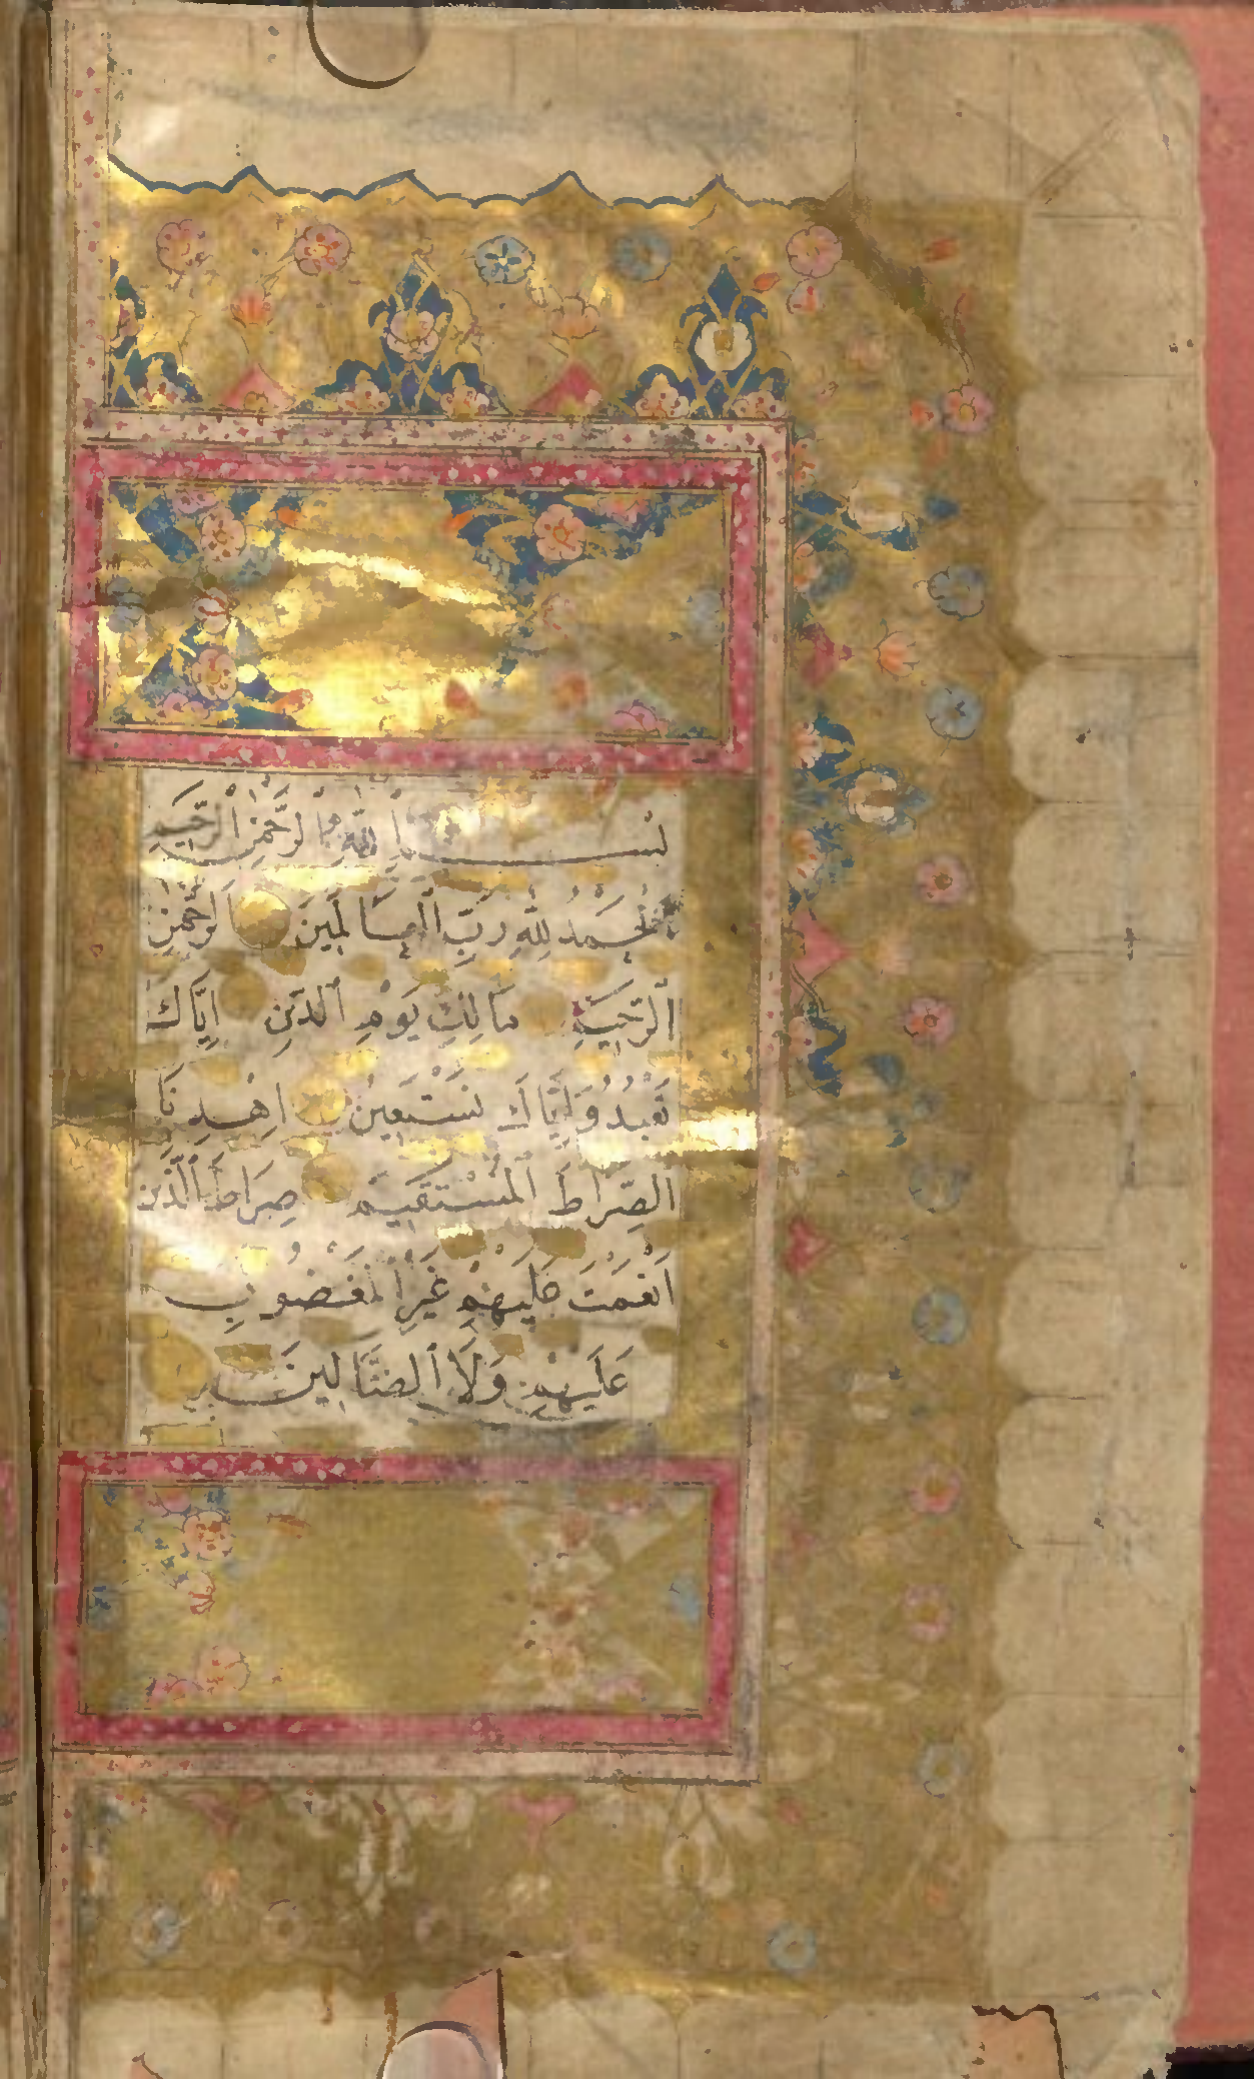 بسم الله الرحمن الرحيم
الحمد لله رب العالمين الرحمن
الرحيم مالك يوم الدين إياك
نعبد وإياك نستعين اهدنا
الصراط المستقيم صراط الذين
أنعمت عليهم غير المغضوب
عليهم ولا الضالين